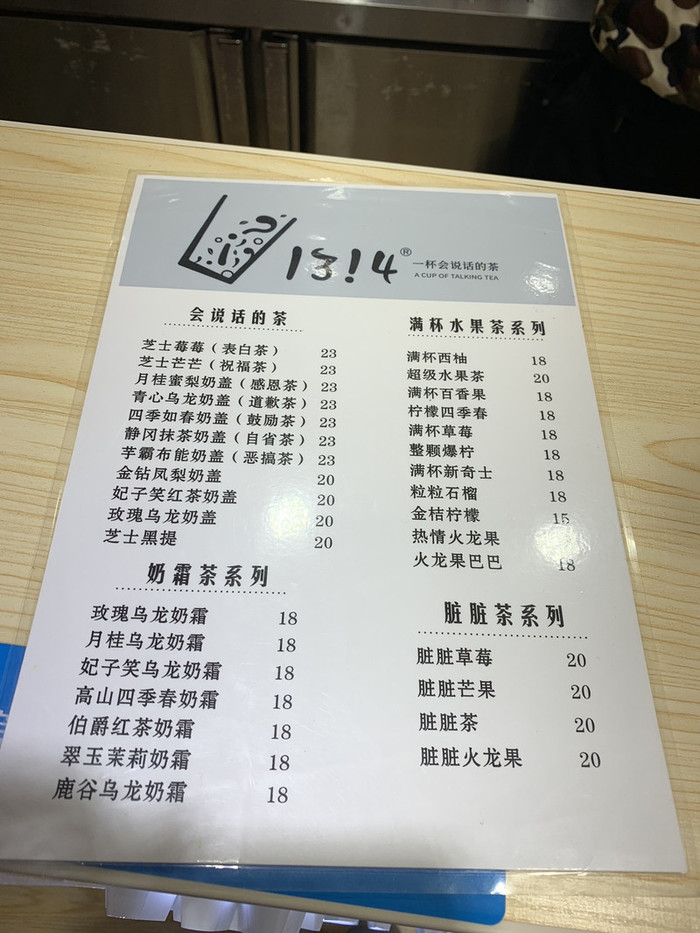 1314®
一杯会说话的茶
A CUP OF TALKING TEA
会说话的茶
芝士莓莓（表白茶） 23
芝士芒芒（祝福茶） 23
月桂蜜梨奶盖（感恩茶） 23
青心乌龙奶盖（道歉茶） 23
四季如春奶盖（鼓励茶） 23
静冈抹茶奶盖（自省茶） 23
芋霸布能奶盖（恶搞茶） 23
金钻凤梨奶盖 20
妃子笑红茶奶盖 20
玫瑰乌龙奶盖 20
芝士黑提 20
奶霜茶系列
玫瑰乌龙奶霜 18
月桂乌龙奶霜 18
妃子笑乌龙奶霜 18
高山四季春奶霜 18
伯爵红茶奶霜 18
翠玉茉莉奶霜 18
鹿谷乌龙奶霜 18
满杯水果茶系列
满杯西柚 18
超级水果茶 20
满杯百香果 18
柠檬四季春 18
满杯草莓 18
整颗爆柠 18
满杯新奇士 18
粒粒石榴 18
金桔柠檬 15
热情火龙果
火龙果巴巴 18
脏脏茶系列
脏脏草莓 20
脏脏芒果 20
脏脏茶 20
脏脏火龙果 20